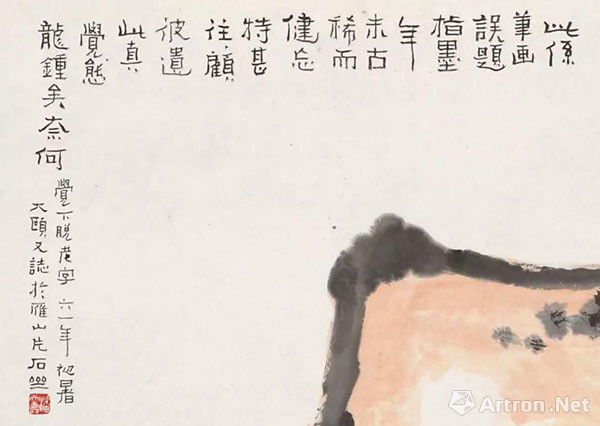 此係
筆画
誤題
指墨
年
未古
稀而
健忘
特甚
往顧
彼遺
此真
覺態
龍鍾矣奈何
覺下脫老字 六一年初暑
大頤又誌於雁山片石
Artron.Net